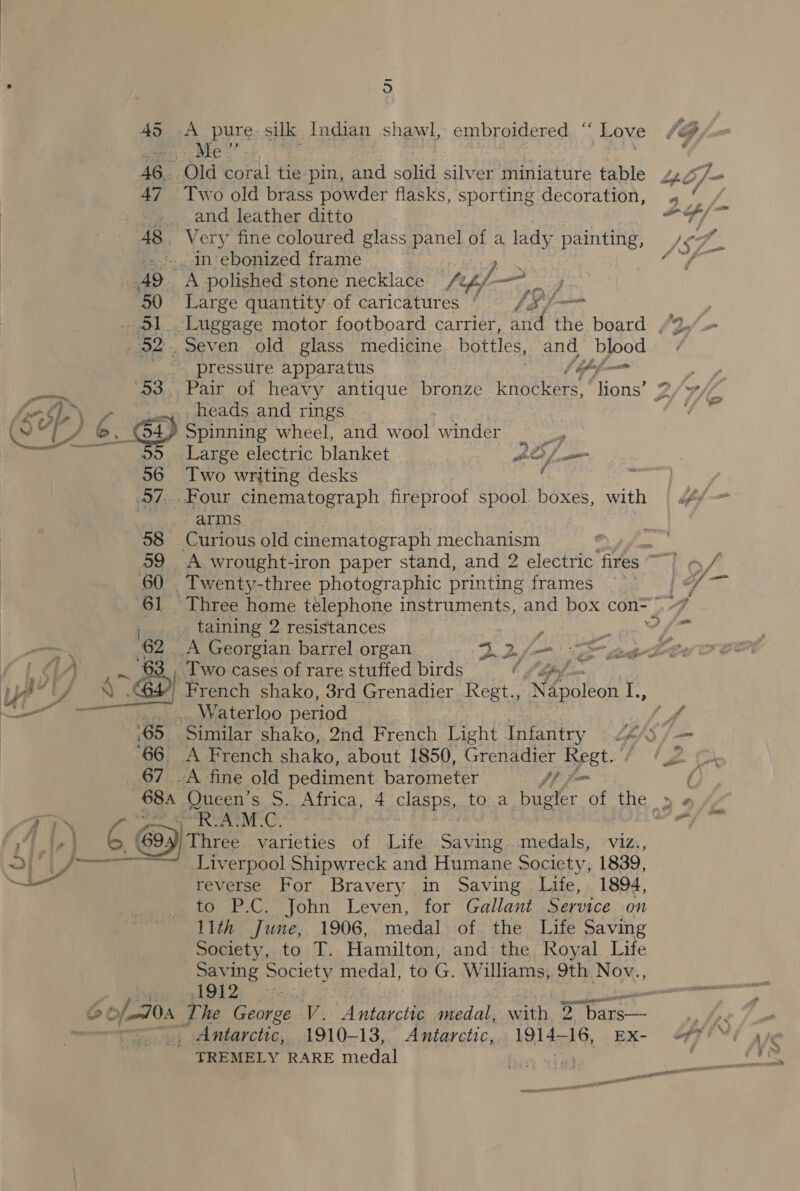 5
45 A pure silk Indian shawl, embroidered “ Love
Me ”
46 Old coral tie pin, and solid silver miniature table
47 Two old brass powder flasks, sporting decoration,
and leather ditto
48 Very fine coloured glass panel of a lady painting,
in ebonized frame
49 A polished stone necklace
50 Large quantity of caricatures
51 Luggage motor footboard carrier, and the board
52 Seven old glass medicine bottles, and blood
pressure apparatus
53 Pair of heavy antique bronze knockers, lions’
heads and rings
54 Spinning wheel, and wool winder
55 Large electric blanket
56 Two writing desks
57 Four cinematograph fireproof spool boxes, with
arms
58 Curious old cinematograph mechanism
59 A wrought-iron paper stand, and 2 electric fires
60 Twenty-three photographic printing frames
61 Three home telephone instruments, and box con-
taining 2 resistances
62 A Georgian barrel organ
63 Two cases of rare stuffed birds
64 French shako, 3rd Grenadier Regt., Napoleon I.,
Waterloo period
65 Similar shako, 2nd French Light Infantry
66 A French shako, about 1850, Grenadier Regt.
67 A fine old pediment barometer
68A Queen’s S. Africa, 4 clasps, to a bugler of the
R.A.M.C.
69 Three varieties of Life Saving medals, viz.,
Liverpool Shipwreck and Humane Society, 1839,
reverse For Bravery in Saving Life, 1894,
to P.C. John Leven, for Gallant Service on
11th June, 1906, medal of the Life Saving
Society, to T. Hamilton, and the Royal Life
Saving Society medal, to G. Williams, 9th Nov.,
1912
70A The George V. Antarctic medal, with 2 bars—
Antarctic, 1910-13, Antarctic, 1914-16, EX-
TREMELY RARE medal